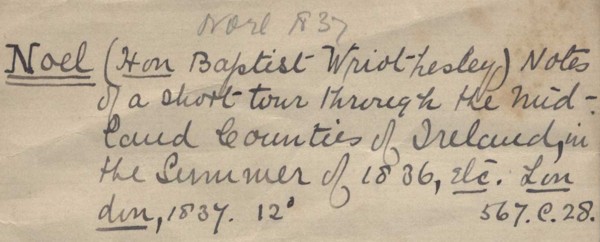 Noel 1837
Noel (Hon Baptist Wriothesley) Notes
of a short tour through the Mid-
land Counties of Ireland, in
the Summer of 1836, etc. Lon
don, 1837. 12°
567.C.28.